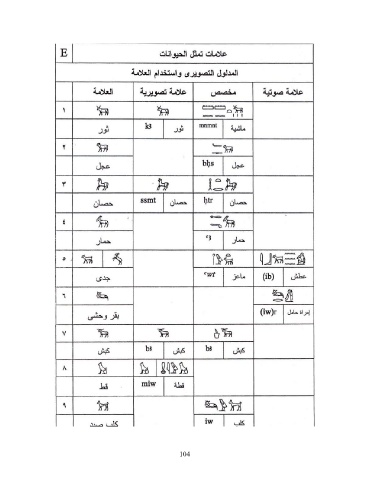 E علامات تمثل الحيوانات
المدلول التصويرى واستخدام العلامة
العلامة علامة تصويرية مخصص علامة صوتية
١
ثور ثور kȝ ماشية mnmnt
٢
عجل عجل bḥs
٣
حصان حصان ssmt حصان ḥtr
٤
حمار حمار ꜥȝ
٥
جدى ماعز ꜥwt عطش (ib)
٦
بقر وحشى إمرأة حامل (iw)r
٧
كبش كبش bȝ كبش bȝ
٨
قط قطة miw
٩
كلب صيد كلب iw
104